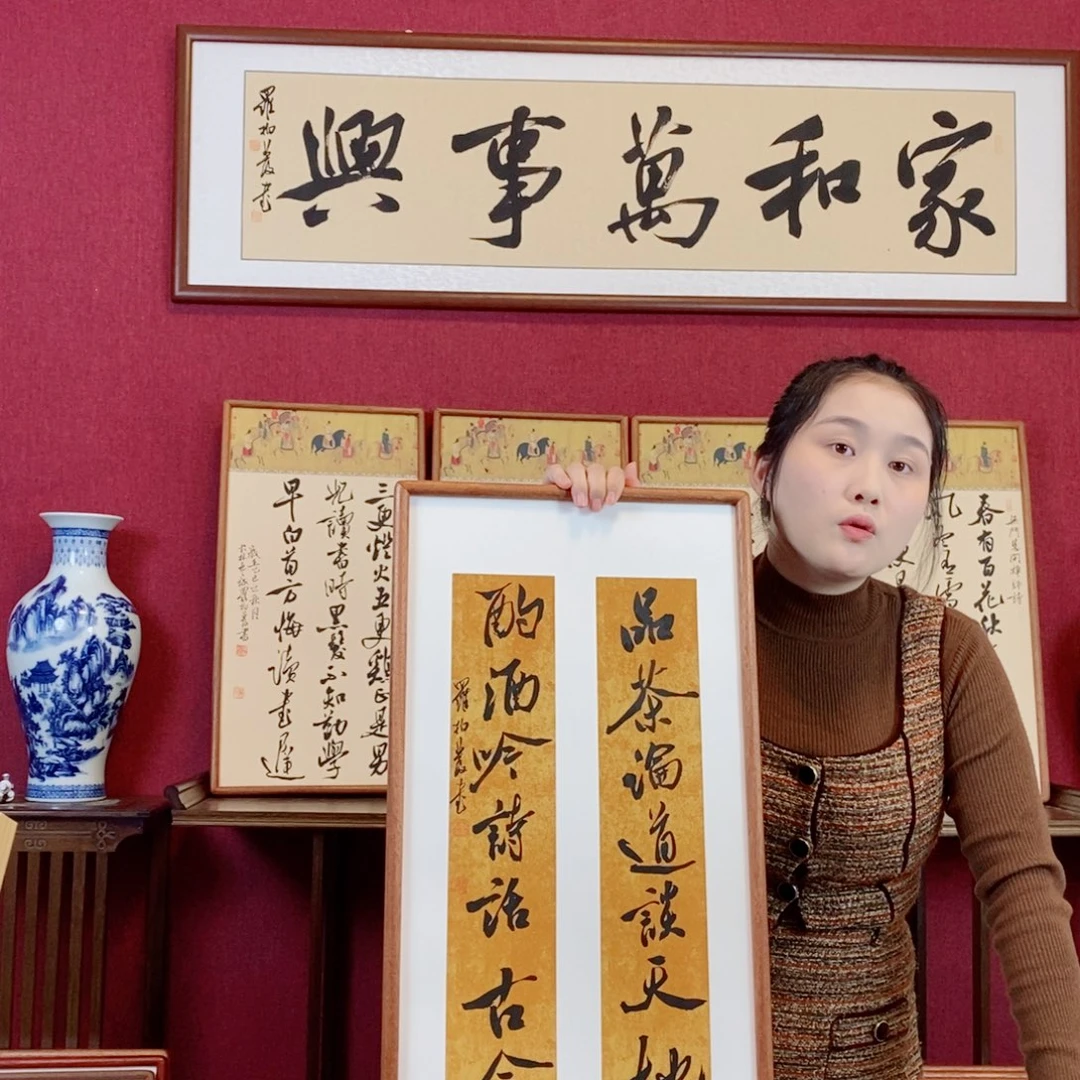 家和萬事興
三更燈火五更雞正是男
兒讀書時黑髮不知勤學
早白首方悔讀書遲
品茶論道談天地
酌酒吟詩話古今
春有百花秋